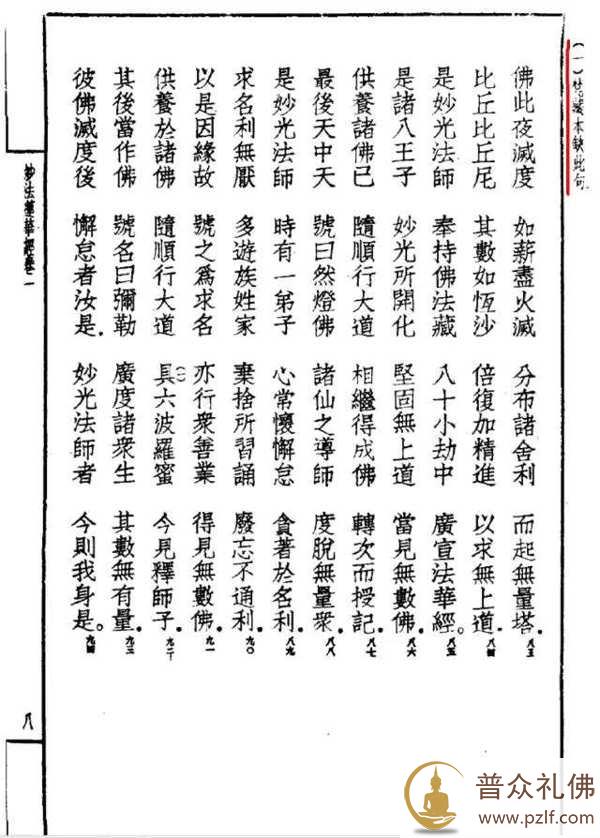 （一）梵藏本缺此句。
佛此夜滅度　如薪盡火滅　分布諸舍利　而起無量塔．八三
比丘比丘尼　其數如恆沙　倍復加精進　以求無上道．八四
是妙光法師　奉持佛法藏　八十小劫中　廣宣法華經。八五
是諸八王子　妙光所開化　堅固無上道　當見無數佛．八六
供養諸佛已　隨順行大道　相繼得成佛　轉次而授記．八七
最後天中天　號曰然燈佛　諸仙之導師　度脫無量衆．八八
是妙光法師　時有一弟子　心常懷懈怠　貪著於名利．八九
求名利無厭　多遊族姓家　棄捨所習誦　廢忘不通利．九〇
以是因緣故　號之爲求名　亦行衆善業　得見無數佛．九一
供養於諸佛　隨順行大道　（一）具六波羅蜜　今見釋師子．九二
其後當作佛　號名曰彌勒　廣度諸衆生　其數無有量．九三
彼佛滅度後　懈怠者汝是．　妙光法師者　今則我身是。九四
妙法蓮華經卷一
八
普众礼佛
www.pzlf.com